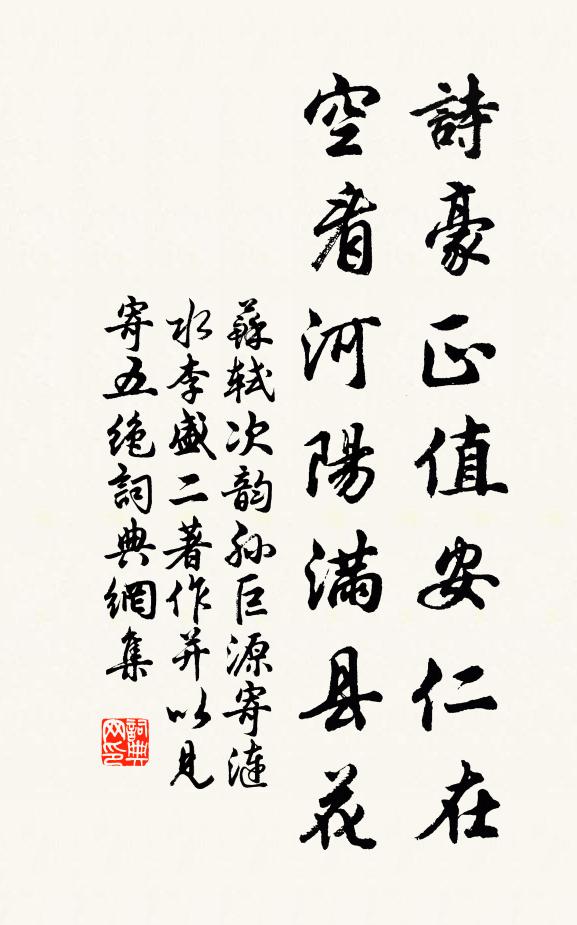 詩豪正值安仁在
空看河陽滿县花
蘇軾次韵孫巨源寄漣
水李盛二著作并以見
寄五絕詞典網集
詞典网印